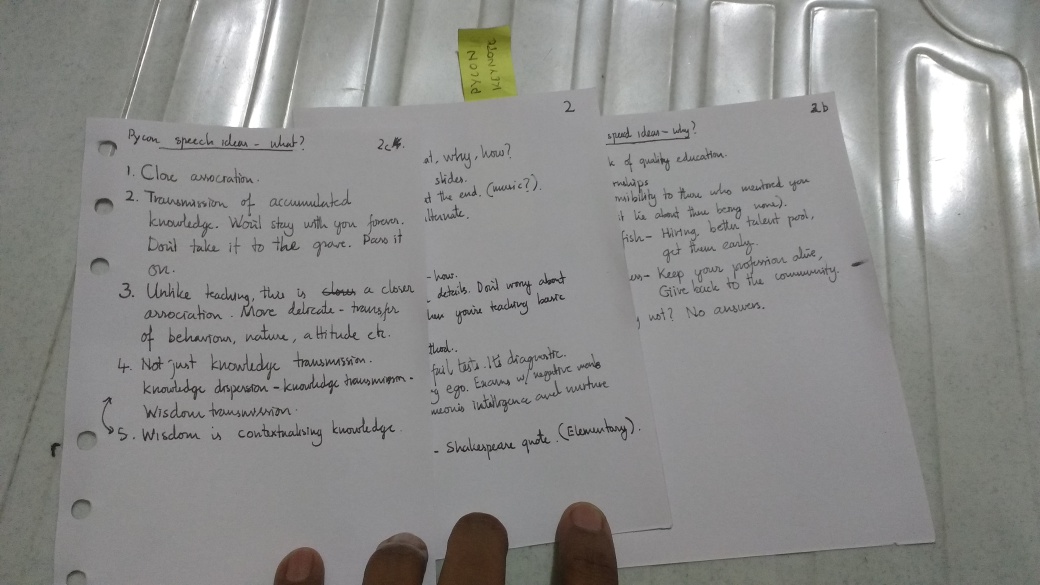 PYCON
KEYNOTE
Pycon speech ideas - what?
1. Close association.
2. Transmission of accumulated
knowledge. Won't stay with you forever.
Don't take it to the grave. Pass it
on.
3. Unlike teaching, this is closer a closer
association. More delicate - transfer
of behaviour, nature, attitude etc.
4. Not just knowledge transmission.
knowledge dispersion - knowledge transmission -
Wisdom transmission.
5. Wisdom is contextualising knowledge.
2
at, why, how?
slides.
t the end. (music?).
lternate.
- how.
details. Don't worry about
hen you're teaching basic
thod.
fail tests. Its diagnostic.
g ego. Exams w/ negative marks
intelligence and nurture
- Shakespeare quote. (Elementary).
2b
speech ideas - why?
k of quality education.
nships
nsibility to those who mentored you
it lie about there being none).
fish - Hiring, better talent pool,
get them early.
ess - Keep your profession alive,
Give back to the community.
y not? No answers.